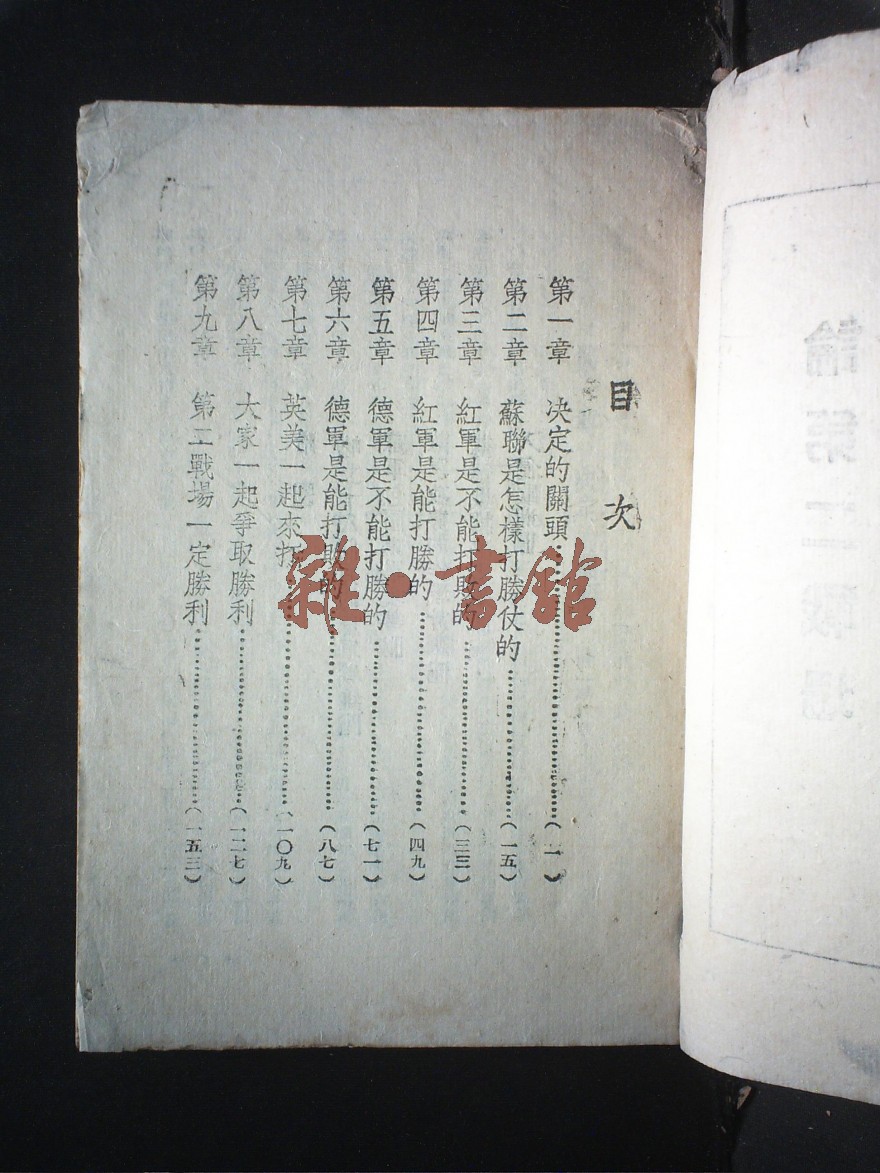 目次
第一章　决定的關頭……（一）
第二章　蘇聯是怎樣打勝仗的……（一五）
第三章　紅軍是不能打敗的……（三三）
第四章　紅軍是能打勝的……（四九）
第五章　德軍是不能打勝的……（七一）
第六章　德軍是能打敗的……（八七）
第七章　英美一起來打……（一〇九）
第八章　大家一起爭取勝利……（一二七）
第九章　第二戰場一定勝利……（一五三）
雜·書館
論第二戰場